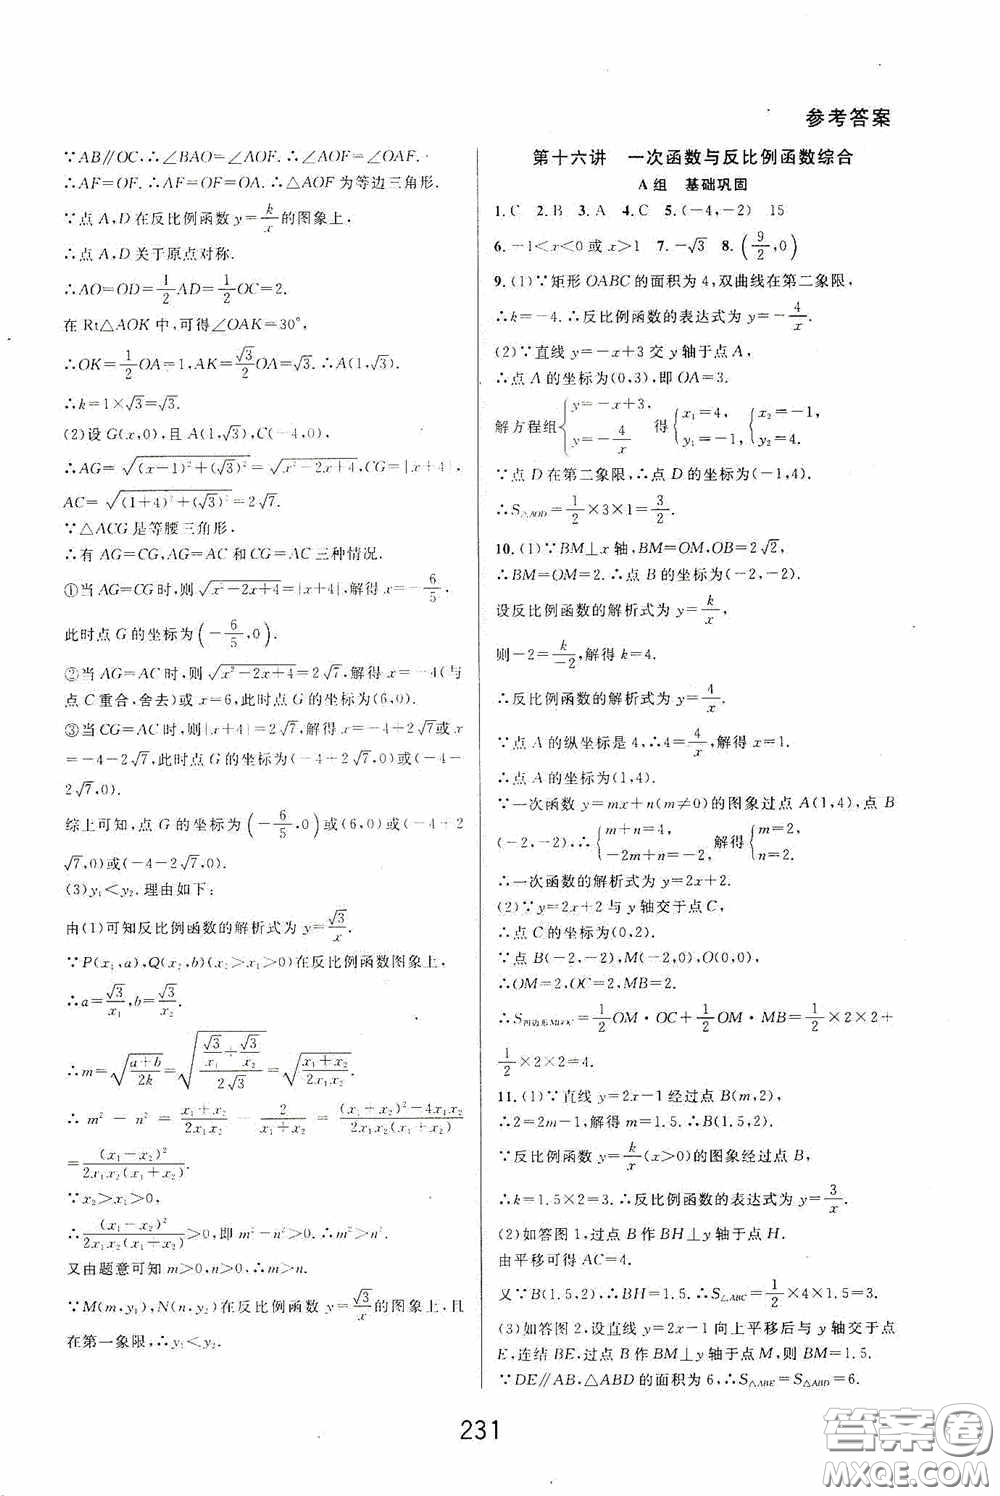 参考答案
∵AB∥OC,∴∠BAO=∠AOF,∴∠AOF=∠OAF.
∴AF=OF. ∴OF=AF=OA. ∴△AOF为等边三角形.
∵点A,D在反比例函数y=k/x的图象上,
∴点A,D关于原点对称.
∴AO=OD=1/2AD=1/2OC=2.
在Rt△AOK中,可得∠OAK=30°,
∴OK=1/2OA=1,AK=√3/2OA=√3. ∴A(1,√3).
∴k=1×√3=√3.
(2)设G(x,0),且A(1,√3),C(-4,0),
∴AG=√((x-1)²+(√3)²)=√(x²-2x+4),CG=|x+4|,
AC=√((1+4)²+(√3)²)=2√7.
∵△ACG是等腰三角形.
∴有AG=CG,AG=AC和CG=AC三种情况.
①当AG=CG时,则√(x²-2x+4)=|x+4|,解得x=-6/5.
此时点G的坐标为(-6/5,0).
②当AG=AC时,则√(x²-2x+4)=2√7,解得x=-4(与
点C重合,舍去)或x=6,此时点G的坐标为(6,0).
③当CG=AC时,则|x+4|=2√7,解得x=-4+2√7或x
=-4-2√7,此时点G的坐标为(-4+2√7,0)或(-4-
2√7,0).
综上可知,点G的坐标为(-6/5,0)或(6,0)或(-4+2
√7,0)或(-4-2√7,0).
(3)y₁<y₂.理由如下:
由(1)可知反比例函数的解析式为y=√3/x.
∵P(x₁,a),Q(x₂,b)(x₂>x₁>0)在反比例函数图象上,
∴a=√3/x₁,b=√3/x₂.
∴m=√((a+b)/2k)=√((√3/x₁+√3/x₂)/2√3)=√((x₁+x₂)/2x₁x₂).
∴m²-n²=(x₁+x₂)/2x₁x₂-2/(x₁+x₂)=((x₁+x₂)²-4x₁x₂)/2x₁x₂(x₁+x₂)
=(x₁-x₂)²/2x₁x₂(x₁+x₂).
∵x₂>x₁>0,
∴(x₁-x₂)²/2x₁x₂(x₁+x₂)>0,即m²-n²>0.∴m²>n².
又由题意可知m>0,n>0,∴m>n.
∵M(m,y₁),N(n,y₂)在反比例函数y=√3/x的图象上,且
在第一象限,∴y₁<y₂.
第十六讲 一次函数与反比例函数综合
A组 基础巩固
1.C 2.B 3.A 4.C 5.(-4,-2) 15
6.-1<x<0或x>1 7.-√3 8.(9/2,0)
9.(1)∵矩形OABC的面积为4,双曲线在第二象限,
∴k=-4.∴反比例函数的表达式为y=-4/x.
(2)∵直线y=-x+3交y轴于点A,
∴点A的坐标为(0,3),即OA=3.
解方程组{y=-x+3, y=-4/x 得{x₁=4, y₁=-1, {x₂=-1, y₂=4.
∵点D在第二象限,∴点D的坐标为(-1,4).
∴S△AOD=1/2×3×1=3/2.
10.(1)∵BM⊥x轴,BM=OM,OB=2√2,
∴BM=OM=2.∴点B的坐标为(-2,-2).
设反比例函数的解析式为y=k/x,
则-2=k/-2,解得k=4.
∴反比例函数的解析式为y=4/x.
∵点A的纵坐标是4,∴4=4/x,解得x=1.
∴点A的坐标为(1,4).
∵一次函数y=mx+n(m≠0)的图象过点A(1,4),点B
(-2,-2),∴{m+n=4, -2m+n=-2, 解得{m=2, n=2.
∴一次函数的解析式为y=2x+2.
(2)∵y=2x+2与y轴交于点C,
∴点C的坐标为(0,2).
∵点B(-2,-2),M(-2,0),O(0,0),
∴OM=2,OC=2,MB=2.
∴S四边形MBOC=1/2OM·OC+1/2OM·MB=1/2×2×2+
1/2×2×2=4.
11.(1)∵直线y=2x-1经过点B(m,2),
∴2=2m-1,解得m=1.5.∴B(1.5,2).
∵反比例函数y=k/x(x>0)的图象经过点B,
∴k=1.5×2=3.∴反比例函数的表达式为y=3/x.
(2)如答图1,过点B作BH⊥y轴于点H.
由平移可得AC=4.
又∵B(1.5,2),∴BH=1.5.∴S△ABC=1/2×4×1.5=3.
(3)如答图2,设直线y=2x-1向上平移后与y轴交于点
E,连结BE,过点B作BM⊥y轴于点M,则BM=1.5.
∵DE∥AB,△ABD的面积为6,∴S△ABE=S△ABD=6.
231
答案圈
MXQE.COM